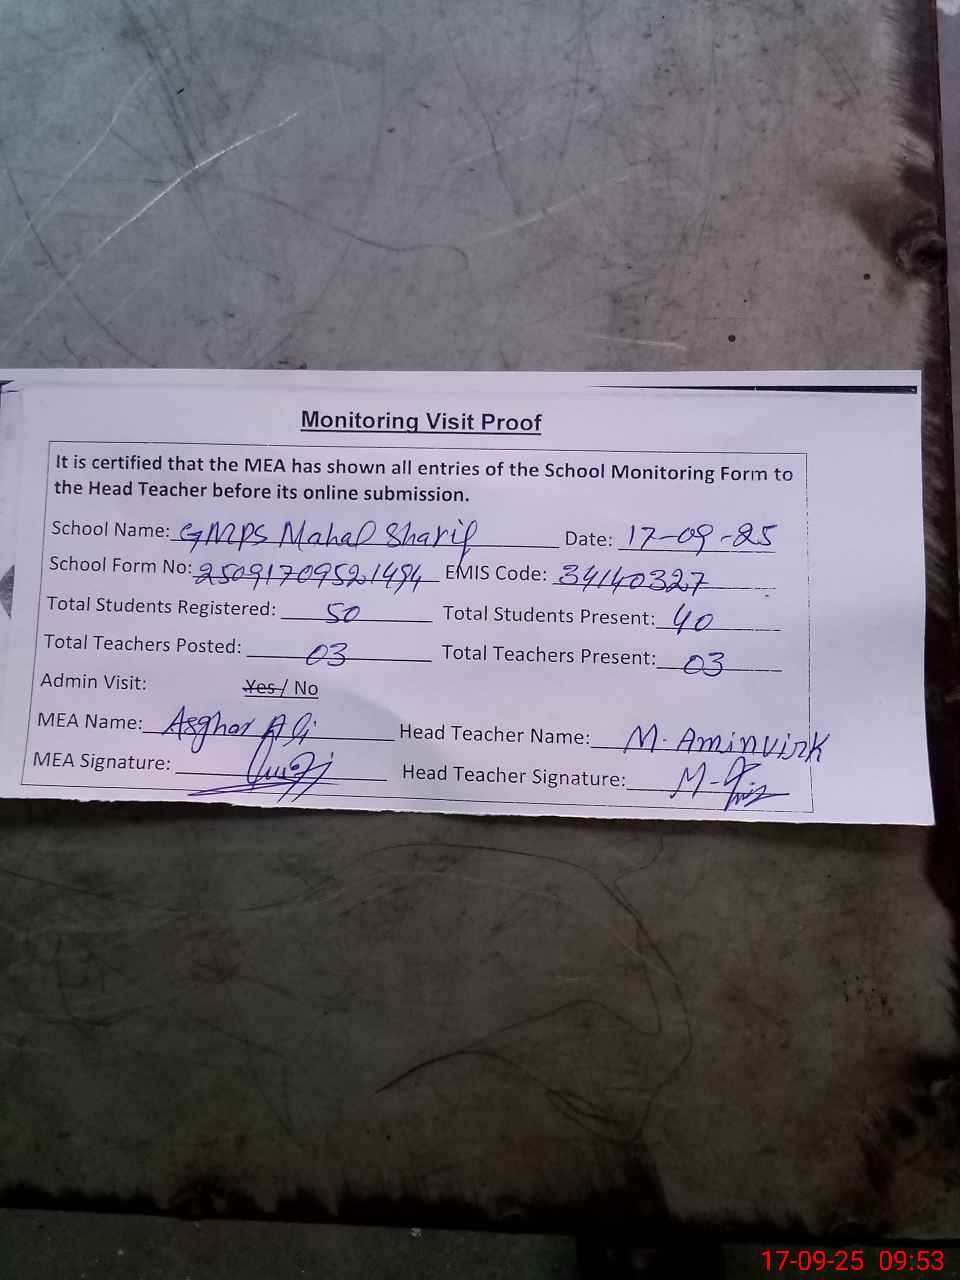 Monitoring Visit Proof
It is certified that the MEA has shown all entries of the School Monitoring Form to
the Head Teacher before its online submission.
School Name: GMPS Mahal Sharif Date: 17-09-25
School Form No: 25091709521494 EMIS Code: 34140327
Total Students Registered: 50 Total Students Present: 40
Total Teachers Posted: 03 Total Teachers Present: 03
Admin Visit: Yes / No
MEA Name: Asghar Ali Head Teacher Name: M. Aminvirk
MEA Signature: Head Teacher Signature:
17-09-25 09:53